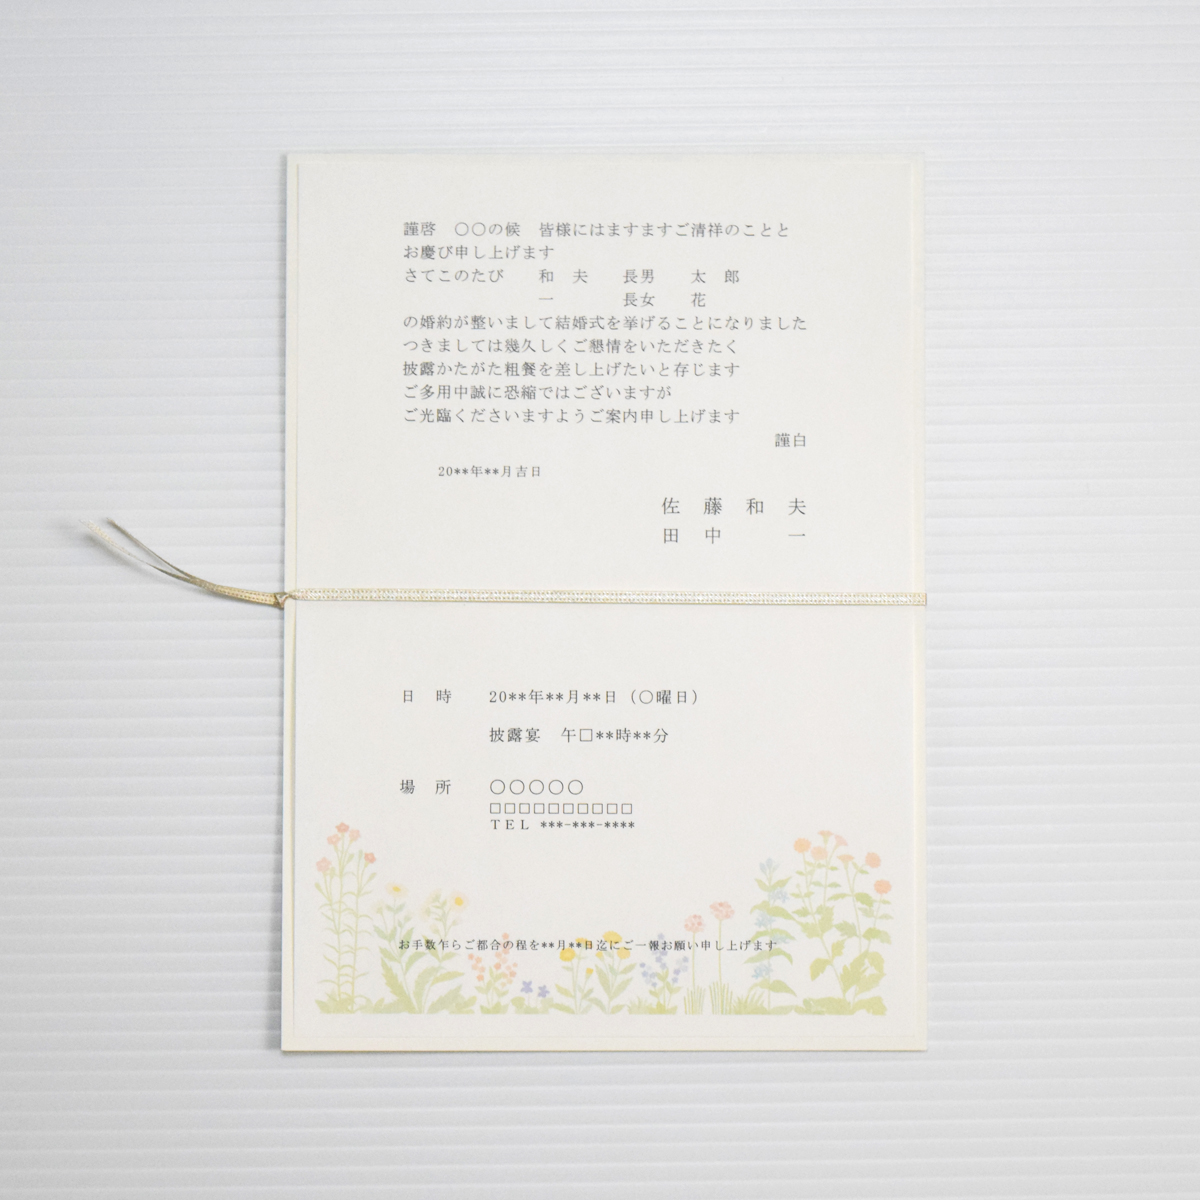 謹啓　〇〇の候　皆様にはますますご清祥のことと
お慶び申し上げます
さてこのたび　　和　夫　　長男　　太　郎
一　　　　長女　　花
の婚約が整いまして結婚式を挙げることになりました
つきましては幾久しくご懇情をいただきたく
披露かたがた粗餐を差し上げたいと存じます
ご多用中誠に恐縮ではございますが
ご光臨くださいますようご案内申し上げます
謹白
20**年**月吉日
佐　藤　和　夫
田　中　　　一
日　時　　20**年**月**日（〇曜日）
披露宴　午□**時**分
場　所　　〇〇〇〇〇
□□□□□□□□□□
ＴＥＬ ***-***-****
お手数乍らご都合の程を**月**日迄にご一報お願い申し上げます